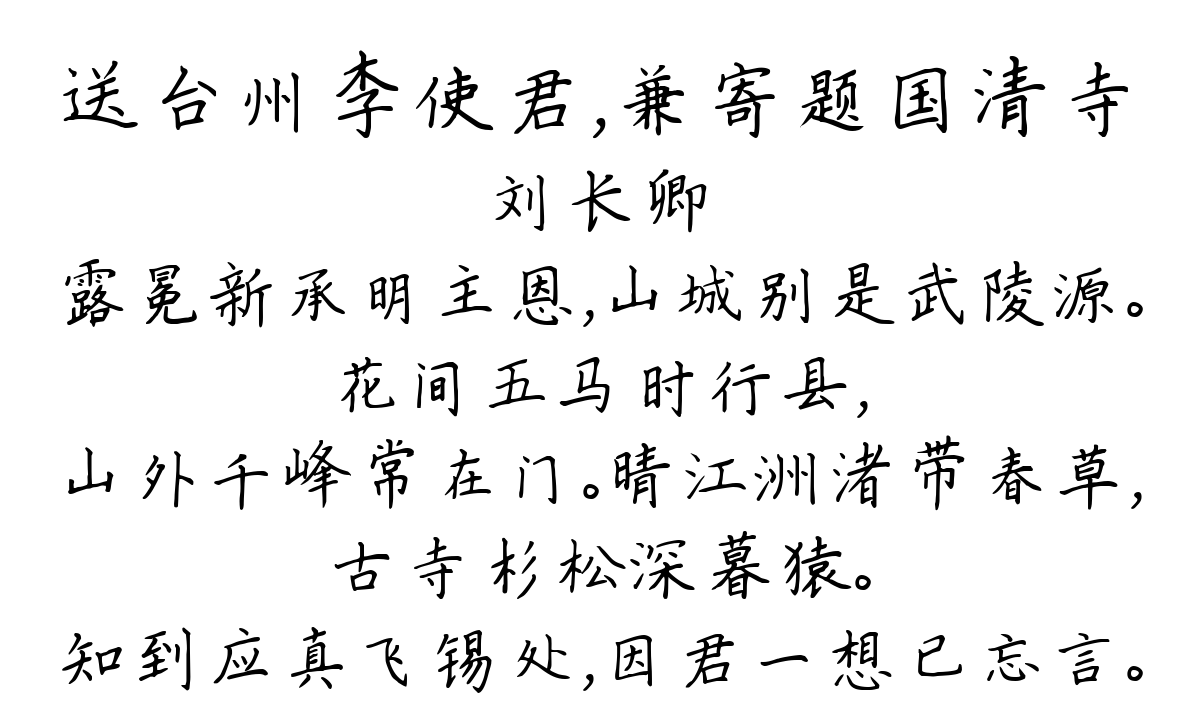 送台州李使君,兼寄题国清寺
刘长卿
露冕新承明主恩,山城别是武陵源。
花间五马时行县,
山外千峰常在门。晴江洲渚带春草,
古寺杉松深暮猿。
知到应真飞锡处,因君一想已忘言。